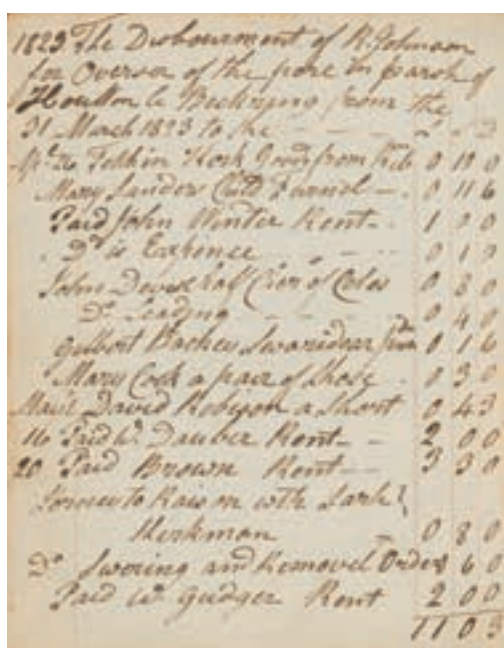 1823 The Disbourment of R. Johnson
for Overser of the pore in parsh of
Houlton le Beckring from the
31 March 1823 to the - - - -
Apl 20 Fethin Kork Goods from 0 12 0
Mary Sanders Child Funnel - 0 11 6
Paid John Winter Rent - 1 0 0
Do is Expince - - - 0 1 9
John half of Coles 0 8 0
Do Leading - - - 0 4 0
Gilbert from 0 1 6
Mary Cock a pair of Shose - 0 3 0
David Robison a Short 0 4 3
16 Paid Wm Dauber Rent - - 2 0 0
20 Paid Brown Rent - - 3 3 0
Jorney to Raison wth Sarh
Workman 0 8 0
Do Swering and Removel Orders 6 0
Paid Wm Gudger Rent 2 0 0
11 0 3